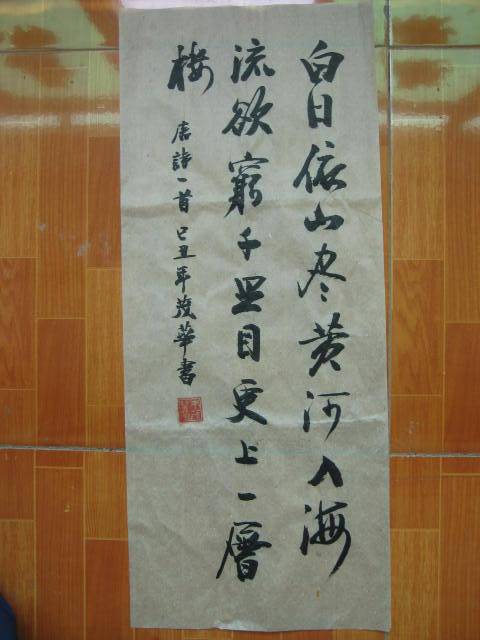 白日依山尽黄河入海
流欲窮千里目更上一層
楼
唐詩一首己丑年茂華書